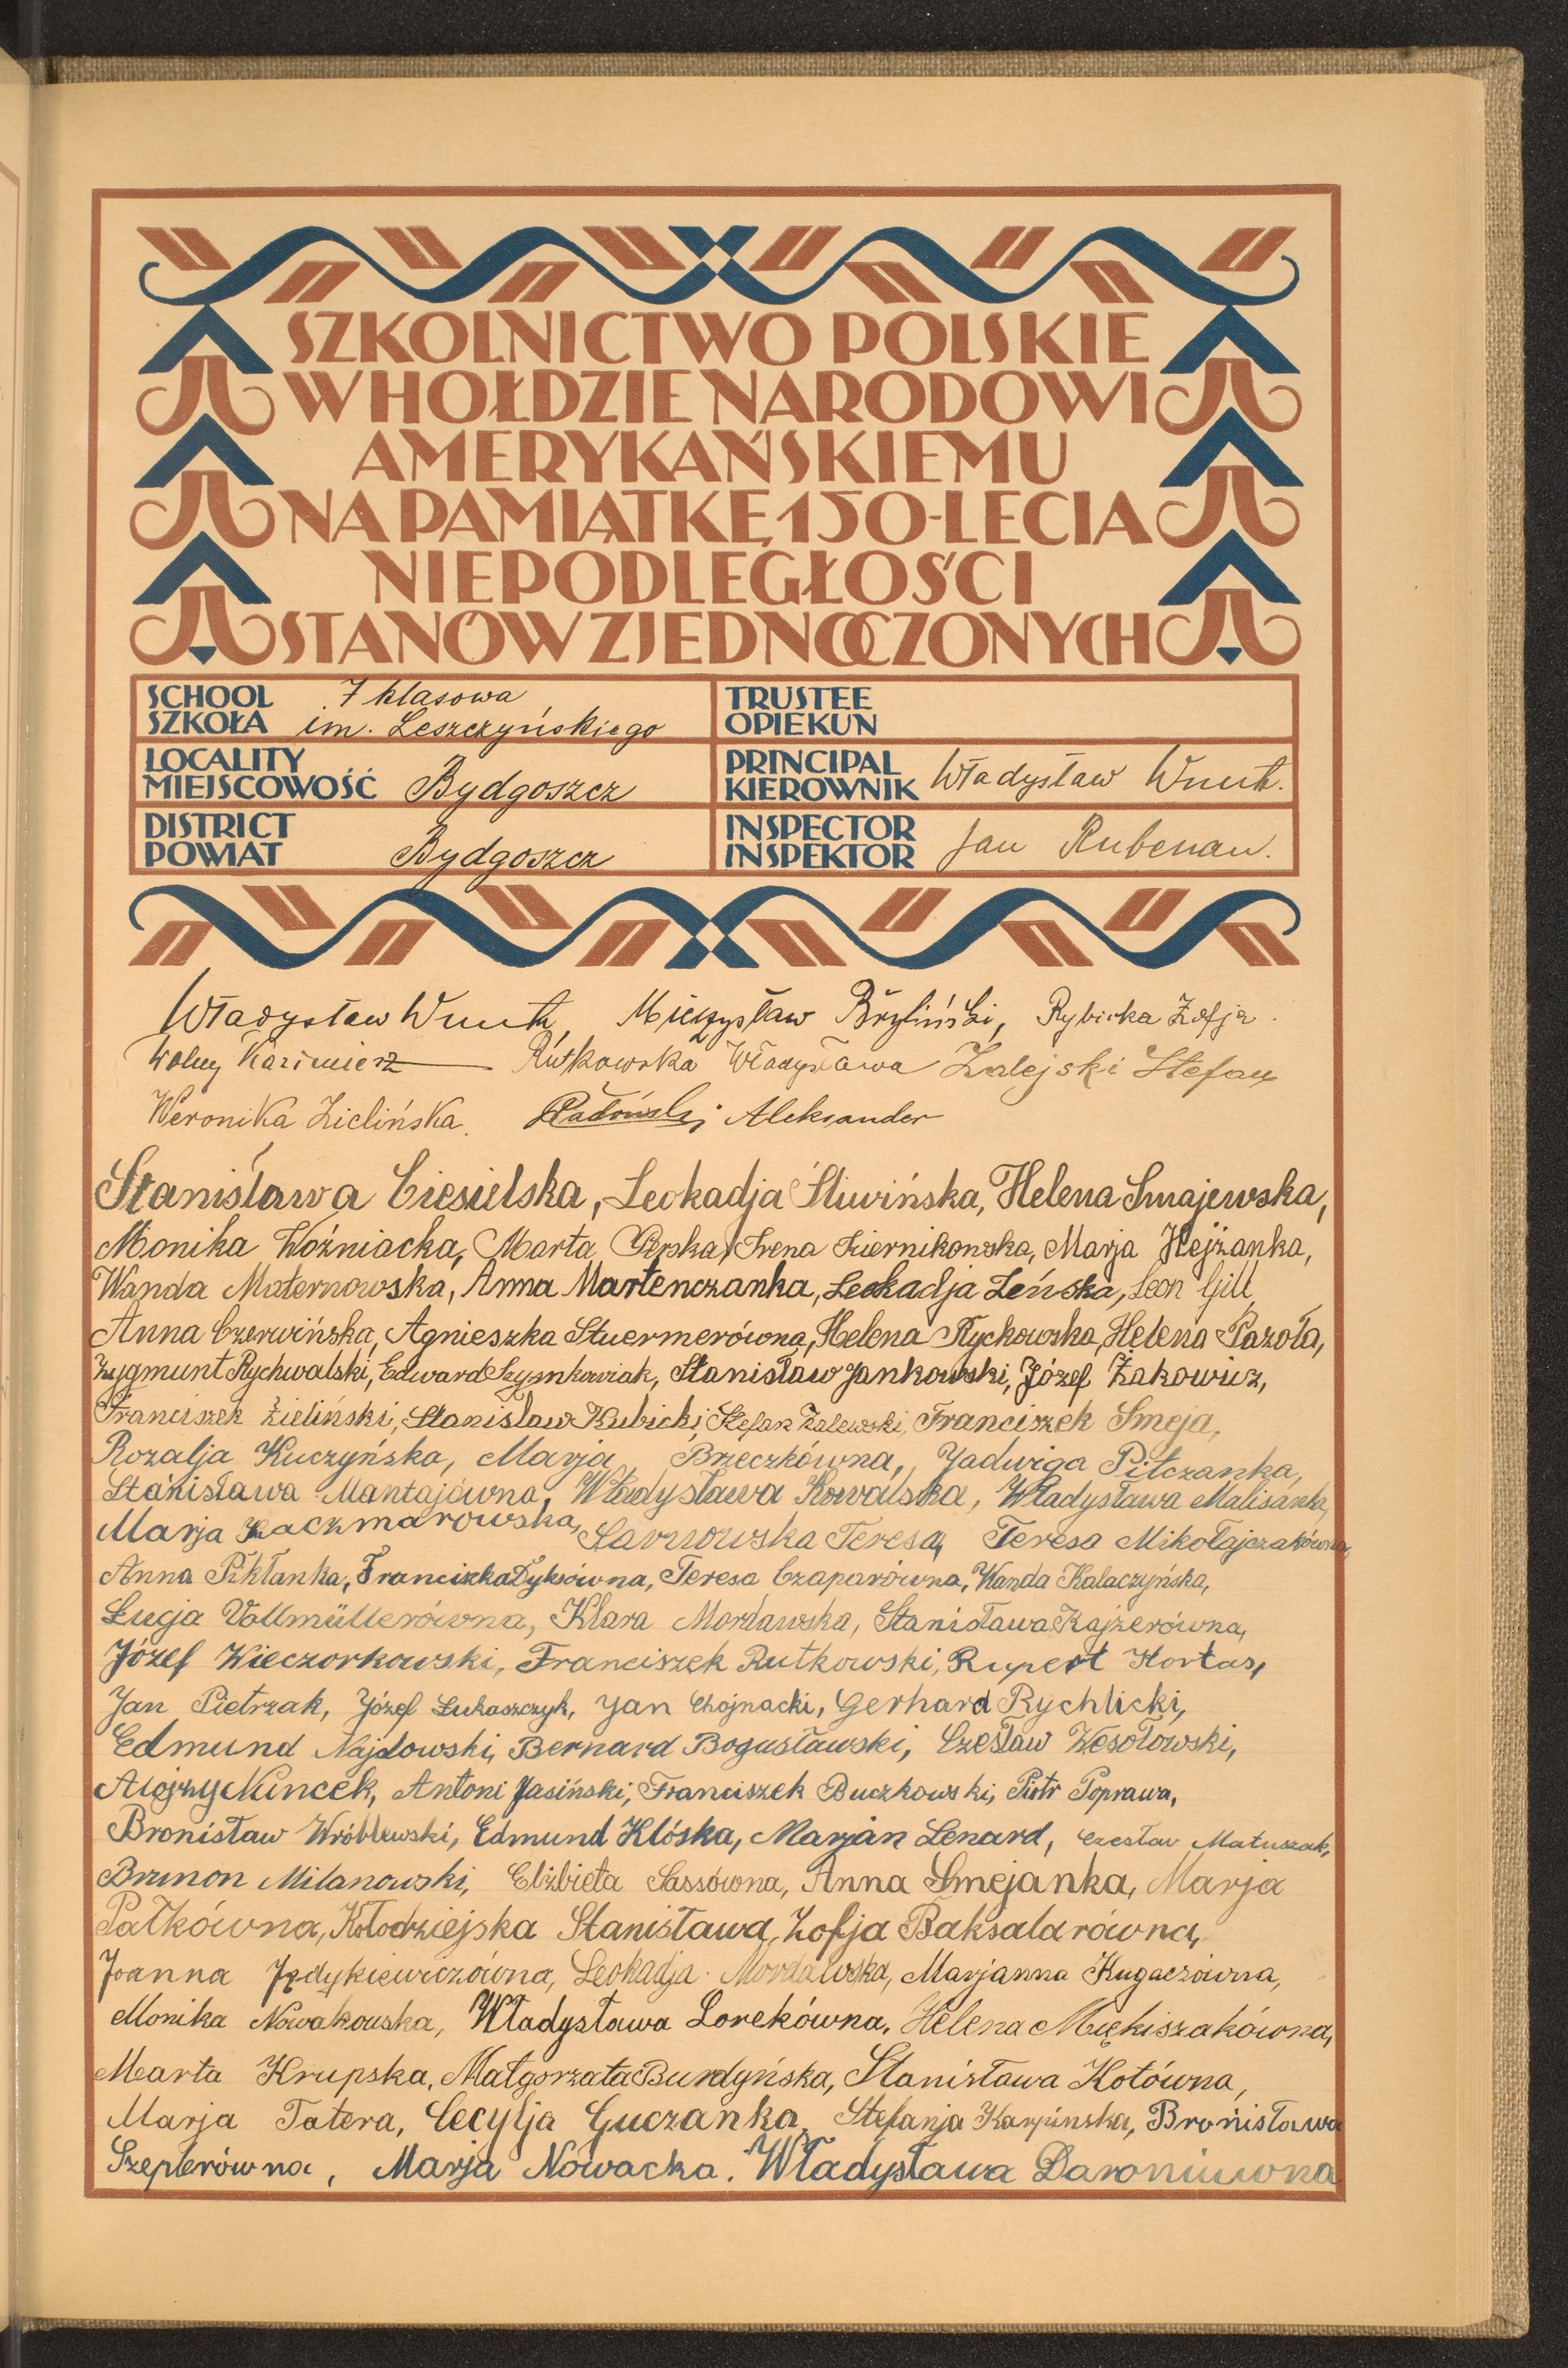 SZKOLNICTWO POLSKIE
W HOŁDZIE NARODOWI
AMERYKAŃSKIEMU
NA PAMIĄTKĘ 150-LECIA
NIEPODLEGŁOŚCI
STANÓW ZJEDNOCZONYCH
SCHOOL SZKOŁA 7 klasowa im. Leszczyńskiego
TRUSTEE OPIEKUN
LOCALITY MIEJSCOWOŚĆ Bydgoszcz
PRINCIPAL KIEROWNIK Władysław Wnuk.
DISTRICT POWIAT Bydgoszcz
INSPECTOR INSPEKTOR Jan Rubenau.
Władysław Wnuk, Mieczysław Bryliński, Rybicka Zofja.
Wolny Kazimierz Rutkowska Władysława Zalejski Stefan
Weronika Zielińska. Aleksander
Stanisława Ciesielska, Leokadja Śliwińska, Helena Smajewska,
Monika Woźniacka, Marta Irena Skiernikowska, Marja Hejzanka,
Wanda Maternowska, Anna Martenczanka, Leokadja Zeńska, Leon Gill,
Anna Czerwińska, Agnieszka Stuermerówna, Helena Rychowska, Helena Pazoła,
Zygmunt Rychwalski, Edward Szymkowiak, Stanisław Jankowski, Józef Żakowicz,
Franciszek Zieliński, Stanisław Kubicki, Stefan Zalewski, Franciszek Smeja,
Rozalja Kuczyńska, Marja Brzeczkówna, Jadwiga Pilczanka,
Stanisława Mantajówna, Władysława Kowalska, Władysława Malisanka,
Marja Kaczmarowska, Sarnowska Teresa, Teresa Mikołajczakówna,
Anna Franciszka Dyksówna, Teresa Czaparówna, Wanda Kalaczyńska,
Łucja Vollmüllerówna, Klara Mordawska, Stanisława Kajzerówna,
Józef Wieczorkowski, Franciszek Rutkowski, Rupert Hortas,
Jan Pietrzak, Józef Łukaszczyk, Jan Chojnacki, Gerhard Rychlicki,
Edmund Najdowski, Bernard Bogusławski, Czesław Wesołowski,
Alojzy Nincek, Antoni Jasiński, Franciszek Buczkowski, Piotr Poprawa,
Bronisław Wróblewski, Edmund Klóska, Marjan Lenard, Czesław Matuszak,
Brunon Milanowski, Elżbieta Sassówna, Anna Smejanka, Marja
Pałkówna, Kołodziejska Stanisława, Zofja Baksalarówna,
Joanna Jędykiewiczówna, Leokadja Mordawska, Marjanna Kugaczówna,
Monika Nowakowska, Władysława Lorekówna, Helena Miękiszakówna,
Marta Krupska, Małgorzata Burdyńska, Stanisława Kotówna,
Marja Tatera, Cecylja Guczanka, Stefanja Karpinska, Bronisława
Szeplerówna, Marja Nowacka. Władysława Daroniuwna